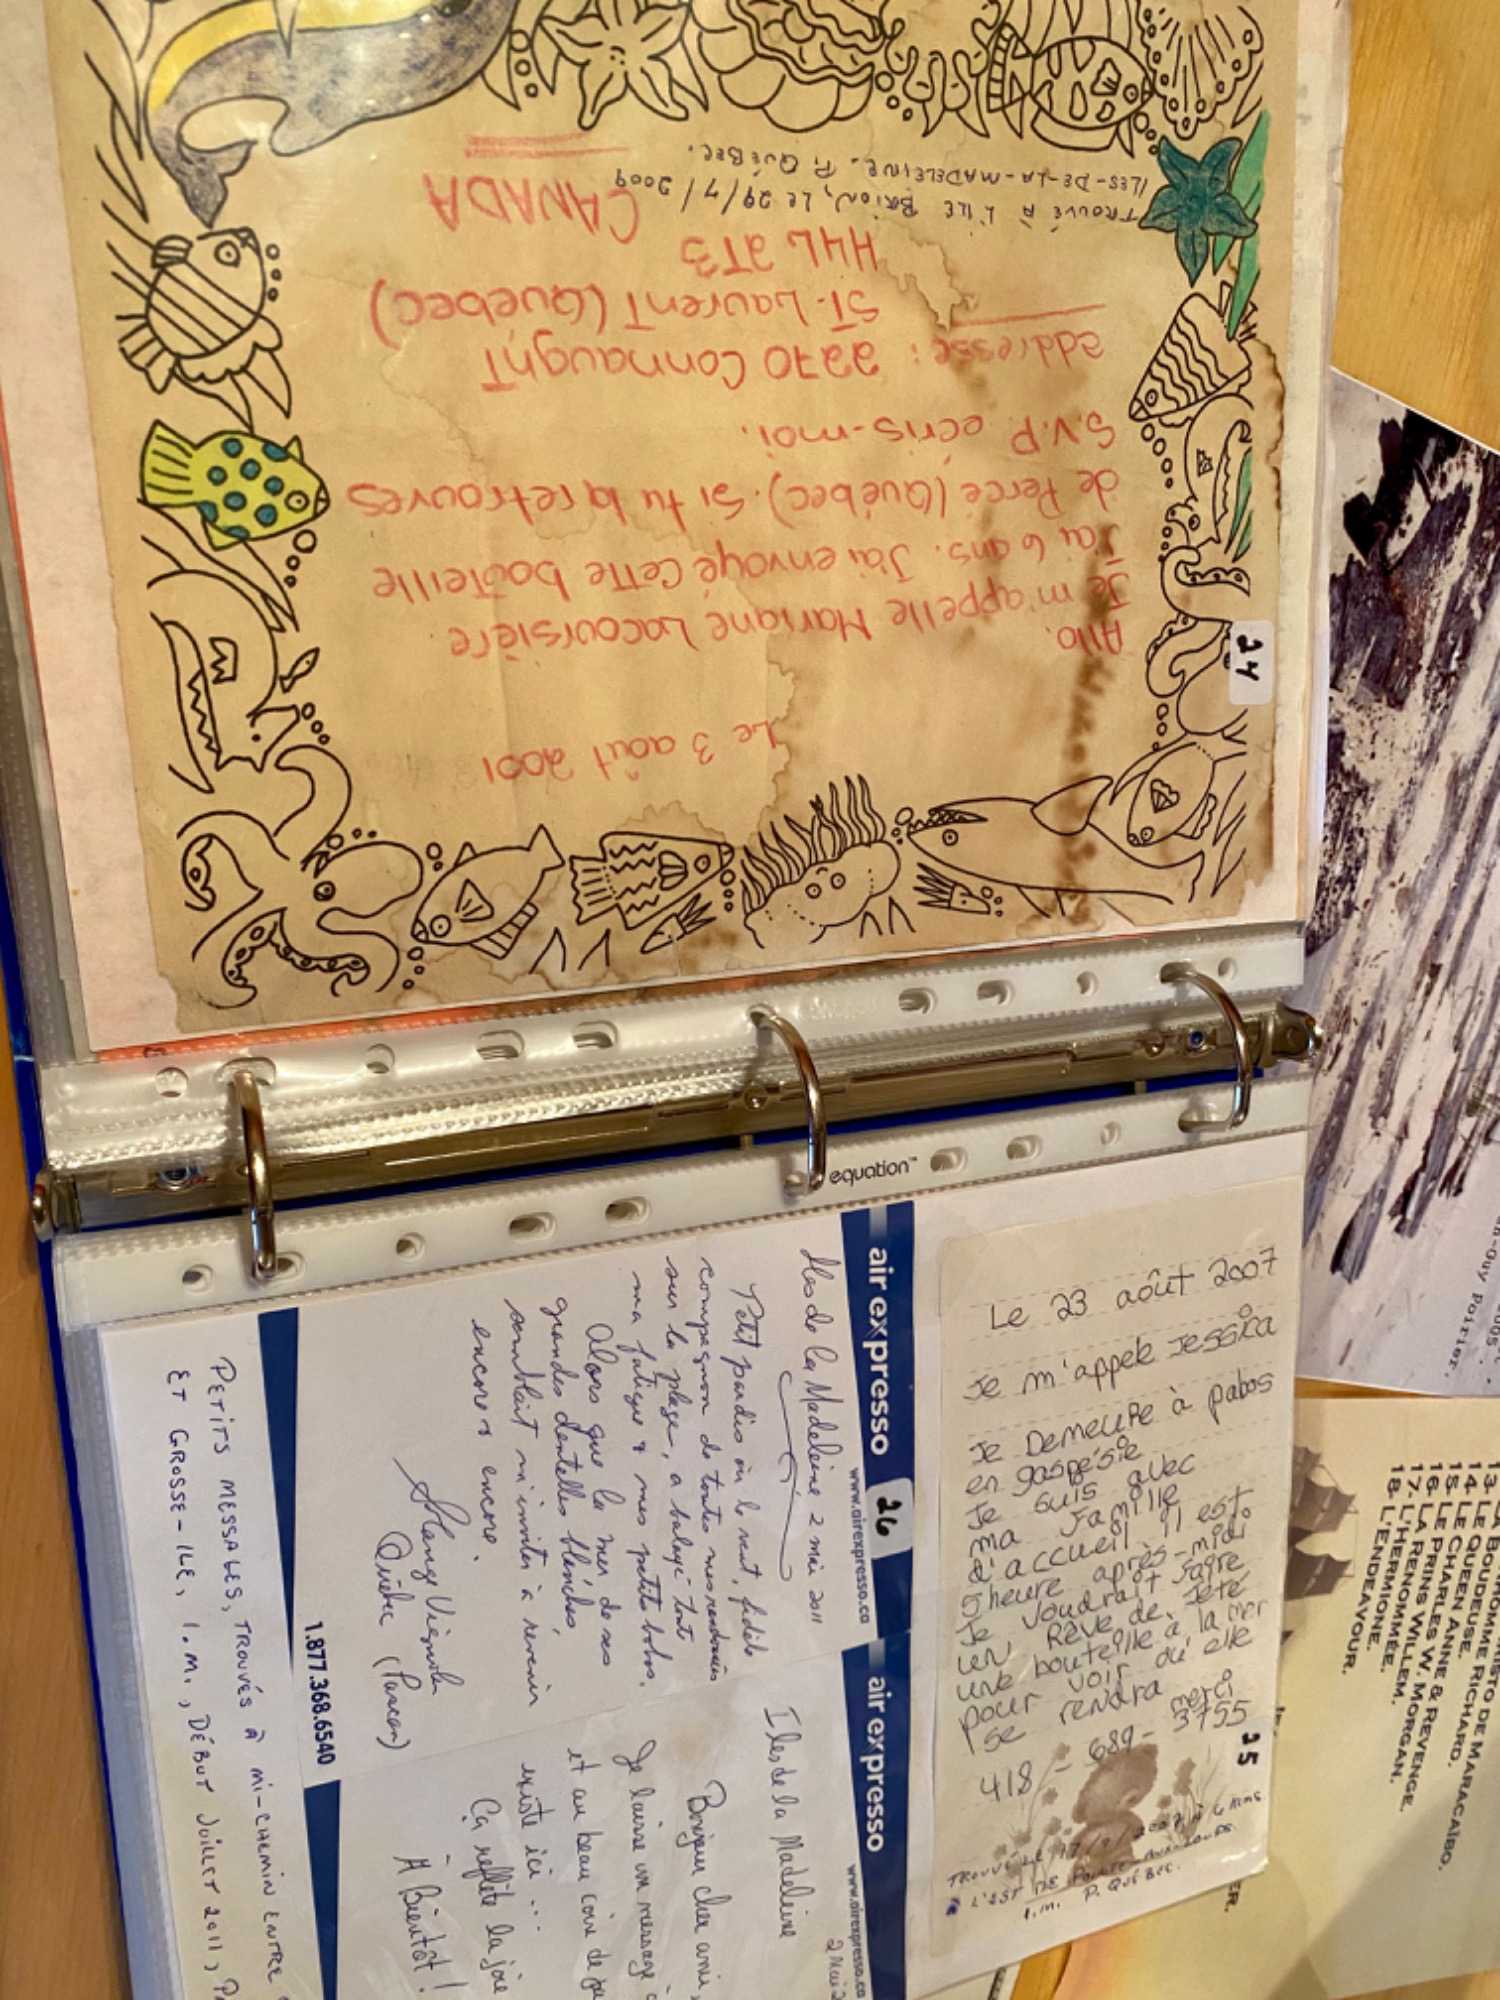 Le 3 août 2001
Allo.
Je m'appelle Mariane Lacoursière
J'ai 6 ans. J'ai envoyé cette bouteille
de Percé (Québec). Si tu la retrouves
S.V.P. écris-moi.
addresse: 2270 Connaught
St-Laurent (Québec)
H4L 2T3
CANADA
TROUVÉ À L'ILE BRION, LE 29/7/2009
ILES-DE-LA-MADELEINE. P. QUÉBEC.
24
equation™
Le 23 août 2007
Je m'appele Jessica
Je Demeure à pabos
en gaspésie
Je suis avec
ma famille
d'accueil il est
5heure après-midi
Je voudrait faire
un Rêve de Jeté
une bouteille à la mer
pour voir où elle
se rendra merci
418-689-3755
25
TROUVÉ LE 17/9/2007 À 6 KMS
L'EST DE POINTE
I.M. P. QUÉBEC.
air expresso
www.airexpresso.ca
26
Iles de la Madeleine 2 mai 2011
Petit paradis où le vent, fidèle
compagnon de toutes mes randonnées
sur la plage, a balayé tout
ma fatigue & mes petits bobos.
Alors que la mer de ses
grandes dentelles blanches,
semblait m'inviter à revenir
encore & encore.
Québec
1.877.368.6540
air expresso
www.airexpresso.ca
Iles de la Madeleine
2 Mai 2
Bonjour cher ami,
Je laisse un message
et au beau coin de
existe ici...
Ça reflète la joie
À Bientôt!
PETITS MESSAGES, TROUVÉS À MI-CHEMIN ENTRE
ET GROSSE-ILE, I.M., DÉBUT JUILLET 2011,
2005.
-Guy Poirier.
14. LE BOUDEUSE RICHARD.
15. LE QUEEN ANNE & REVENGE.
16. LE CHARLES W. MORGAN.
17. LA PRINS WILLEM.
18. L'HERMIONE.
L'ENDEAVOUR.